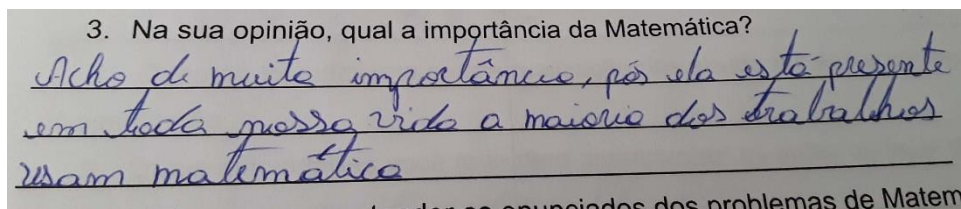 3. Na sua opinião, qual a importância da Matemática?
Acho de muita importância, pós ela está presente
em toda nossa vida a maioria dos trabalhos
usam matemática
enunciados dos problemas de Matem